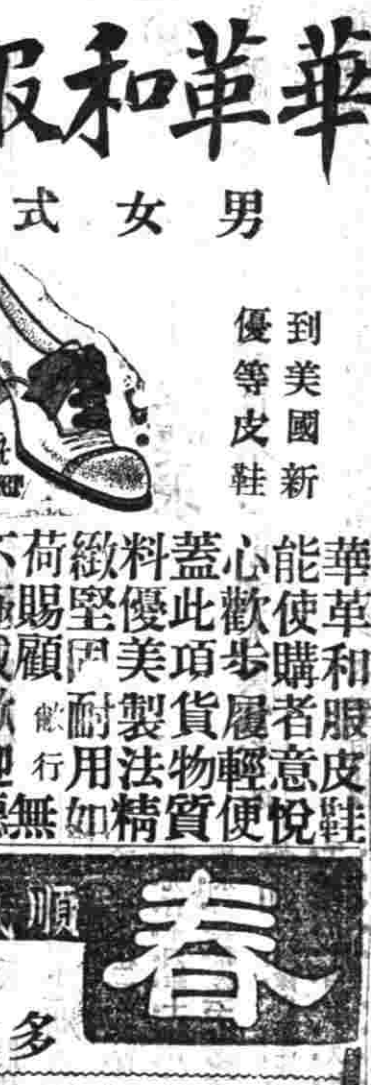 華革和服
男女式
到美國新
優等皮鞋
華革和服皮鞋
能使購者意悅
心歡步履輕便
蓋此項貨物質
料優美製法精
緻堅固耐用如
荷賜顧敝行無
春
順
多